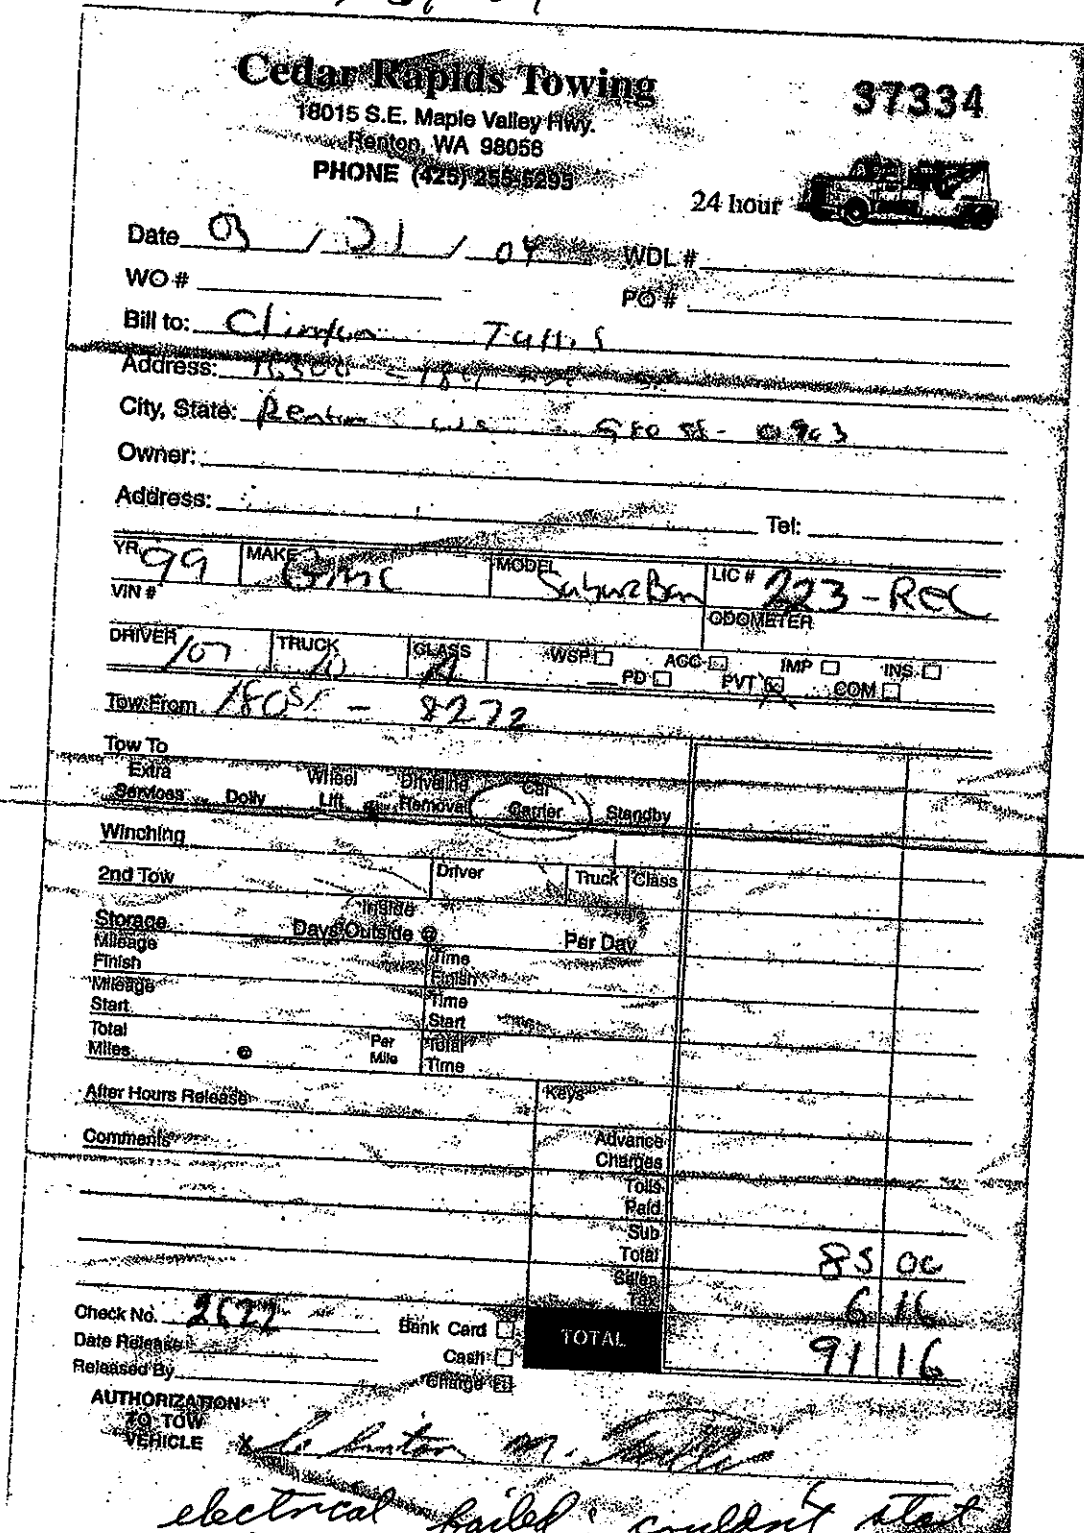 Cedar Rapids Towing
37334
18015 S.E. Maple Valley Hwy.
Renton, WA 98058
PHONE (425) 255-5295
24 hour
Date 03 / 21 / 04 WDL #
WO # PO #
Bill to: Clinton
Address:
City, State: Renton WA 98058-0903
Owner:
Address: Tel:
YR. 99 MAKE GMC MODEL SuburBan LIC # 223-REC
VIN # ODOMETER
DRIVER 107 TRUCK 10 CLASS A WSP ACC IMP INS.
PD PVT X COM
Tow From - 8272
Tow To
Extra Services Dolly Wheel Lift Driveline Removal Car Carrier Standby
Winching
2nd Tow Driver Truck Class
Inside
Storage Days Outside @ Per Day
Mileage Finish Time Finish
Mileage Start Time Start
Total Miles @ Per Mile Total Time
After Hours Release Keys
Comments Advance Charges
Tolls Paid
Sub Total 85 00
Sales Tax 6 16
Check No. 2622 Bank Card TOTAL 91 16
Date Release Cash
Released By Charge
AUTHORIZATION
TO TOW
VEHICLE X Clinton M.
electrical failed; couldn't start